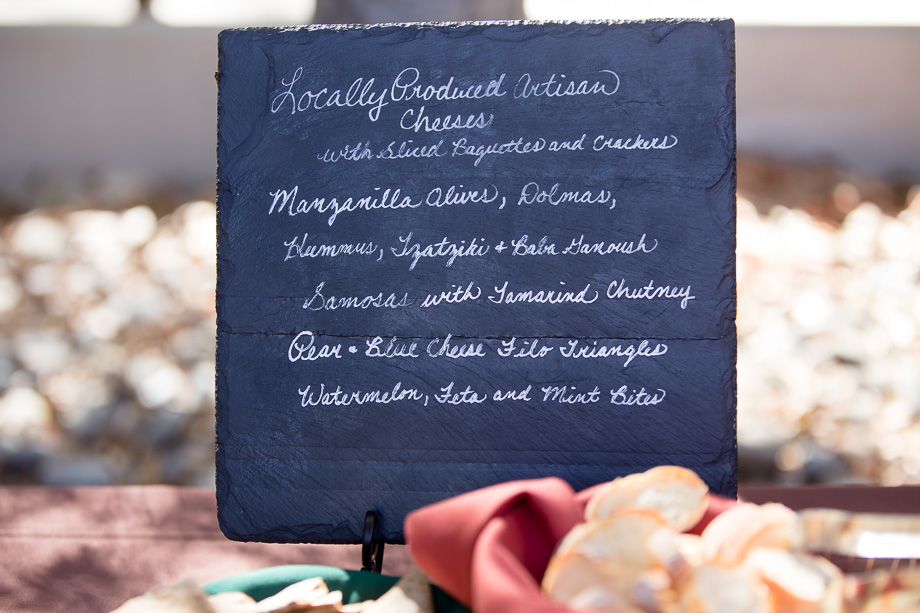 Locally Produced Artisan
Cheeses
with Sliced Baguettes and Crackers
Manzanilla Olives, Dolmas,
Hummus, Tzatziki + Baba Ganoush
Samosas with Tamarind Chutney
Pear + Blue Cheese Filo Triangles
Watermelon, Feta and Mint Bites